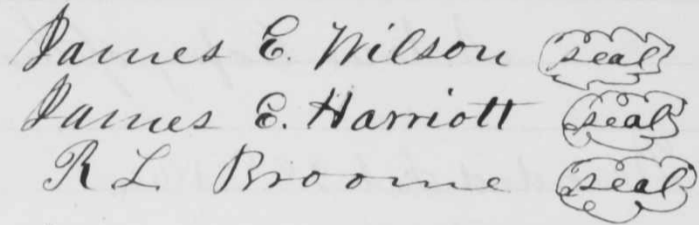 James E. Wilson seal
James E. Harriott seal
R L Broome seal